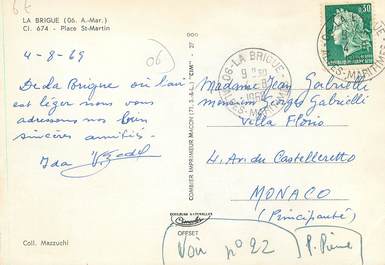 6€
LA BRIGUE (06. A.-Mar.)
Cl. 674 - Place St-Martin
4-8-69
06
De la Brigue où l'air
est léger nous vous
adressons nos bien
sincères amitiés.
Ida
Coll. Mazzuchi
COMBIER IMPRIMEUR MACON (71.S.-&-L.) "CIM"
OFFSET
06-LA BRIGUE
ALPES-MARITIMES
0,30
Madame Jean Gabrielli
Monsieur Georges Gabrielli
Villa Florio
4. Av. du Castelleretto
MONACO
(Principauté)
Voir n° 22